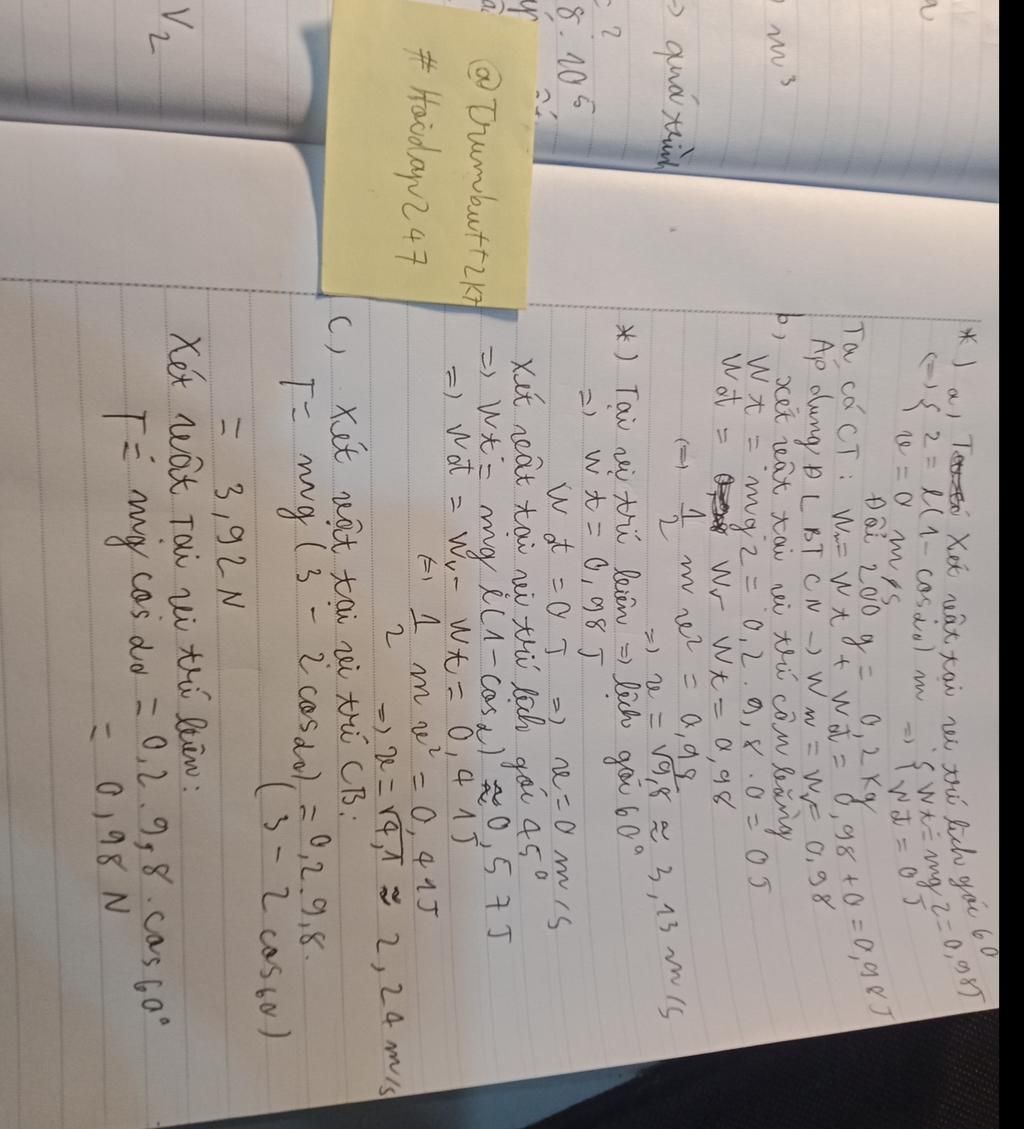 *) a) Xét vật tại vị trí lệch góc 60
(=) { z = l(1 - cosα₀) m => { Wt = mgz = 0,98J
v = 0 m/s Wđ = 0 J
Đổi 200 g = 0,2 kg
Ta có CT: W = Wt + Wđ = 0,98 + 0 = 0,98J
Áp dụng ĐL BTCN -> W = W = 0,98
b, xét vật tại vị trí cân bằng
Wt = mgz = 0,2 . 9,8 . 0 = 0J
Wđ = W - Wt = 0,98
(=) 1/2 m v² = 0,98
=> v = √9,8 ≈ 3,13 m/s
*) Tại vị trí biên => lệch góc 60°
=> Wt = 0,98 J
Wđ = 0 J => v = 0 m/s
Xét vật tại vị trí lệch góc 45°
=> Wt = mg l(1 - cosα) ≈ 0,57J
=> Wđ = W - Wt = 0,41J
(=) 1/2 m v² = 0,41J
=> v = √4,1 ≈ 2,24 m/s
c, Xét vật tại vị trí CB:
T = mg (3 - 2 cosα₀) = 0,2.9,8.
(3 - 2 cos60)
= 3,92 N
Xét vật Tại vị trí biên:
T = mg cosα₀ = 0,2.9,8.cos60°
= 0,98 N
@Trumbutt2k7
#Hoidap247
m³
=> quá trình
2
8.10⁵
V₂